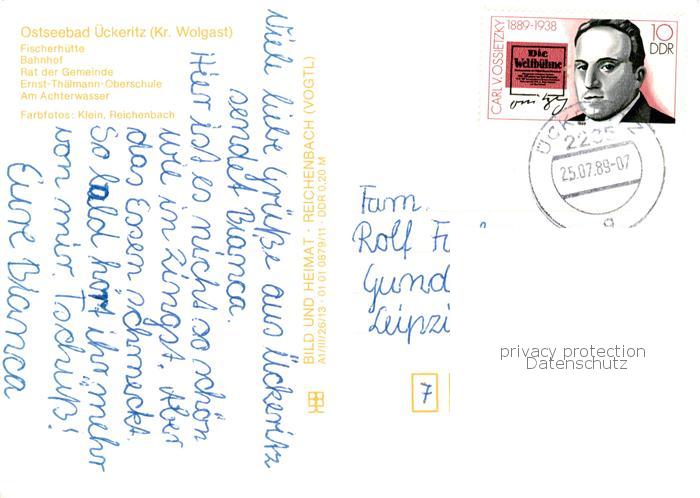 Ostseebad Ückeritz (Kr. Wolgast)
Fischerhütte
Bahnhof
Rat der Gemeinde
Ernst-Thälmann-Oberschule
Am Achterwasser
Farbfotos: Klein, Reichenbach
Viele liebe Grüße aus Ückeritz
sendet Bianca.
Hier ist es nicht so schön
wie in Zingst. Aber
das Essen schmeckt.
So bald hört ihr mehr
von mir. Tschüß!
Eure Bianca
BILD UND HEIMAT · REICHENBACH (VOGTL)
A1/III/26/13 · 01 01 0879/11 · DDR 0,20 M
CARL V. OSSIETZKY 1889-1938
10
DDR
Die
Weltbühne
2235
25.07.89-07
g
Fam.
Rolf F
Gund
Leipzi
7
privacy protection
Datenschutz